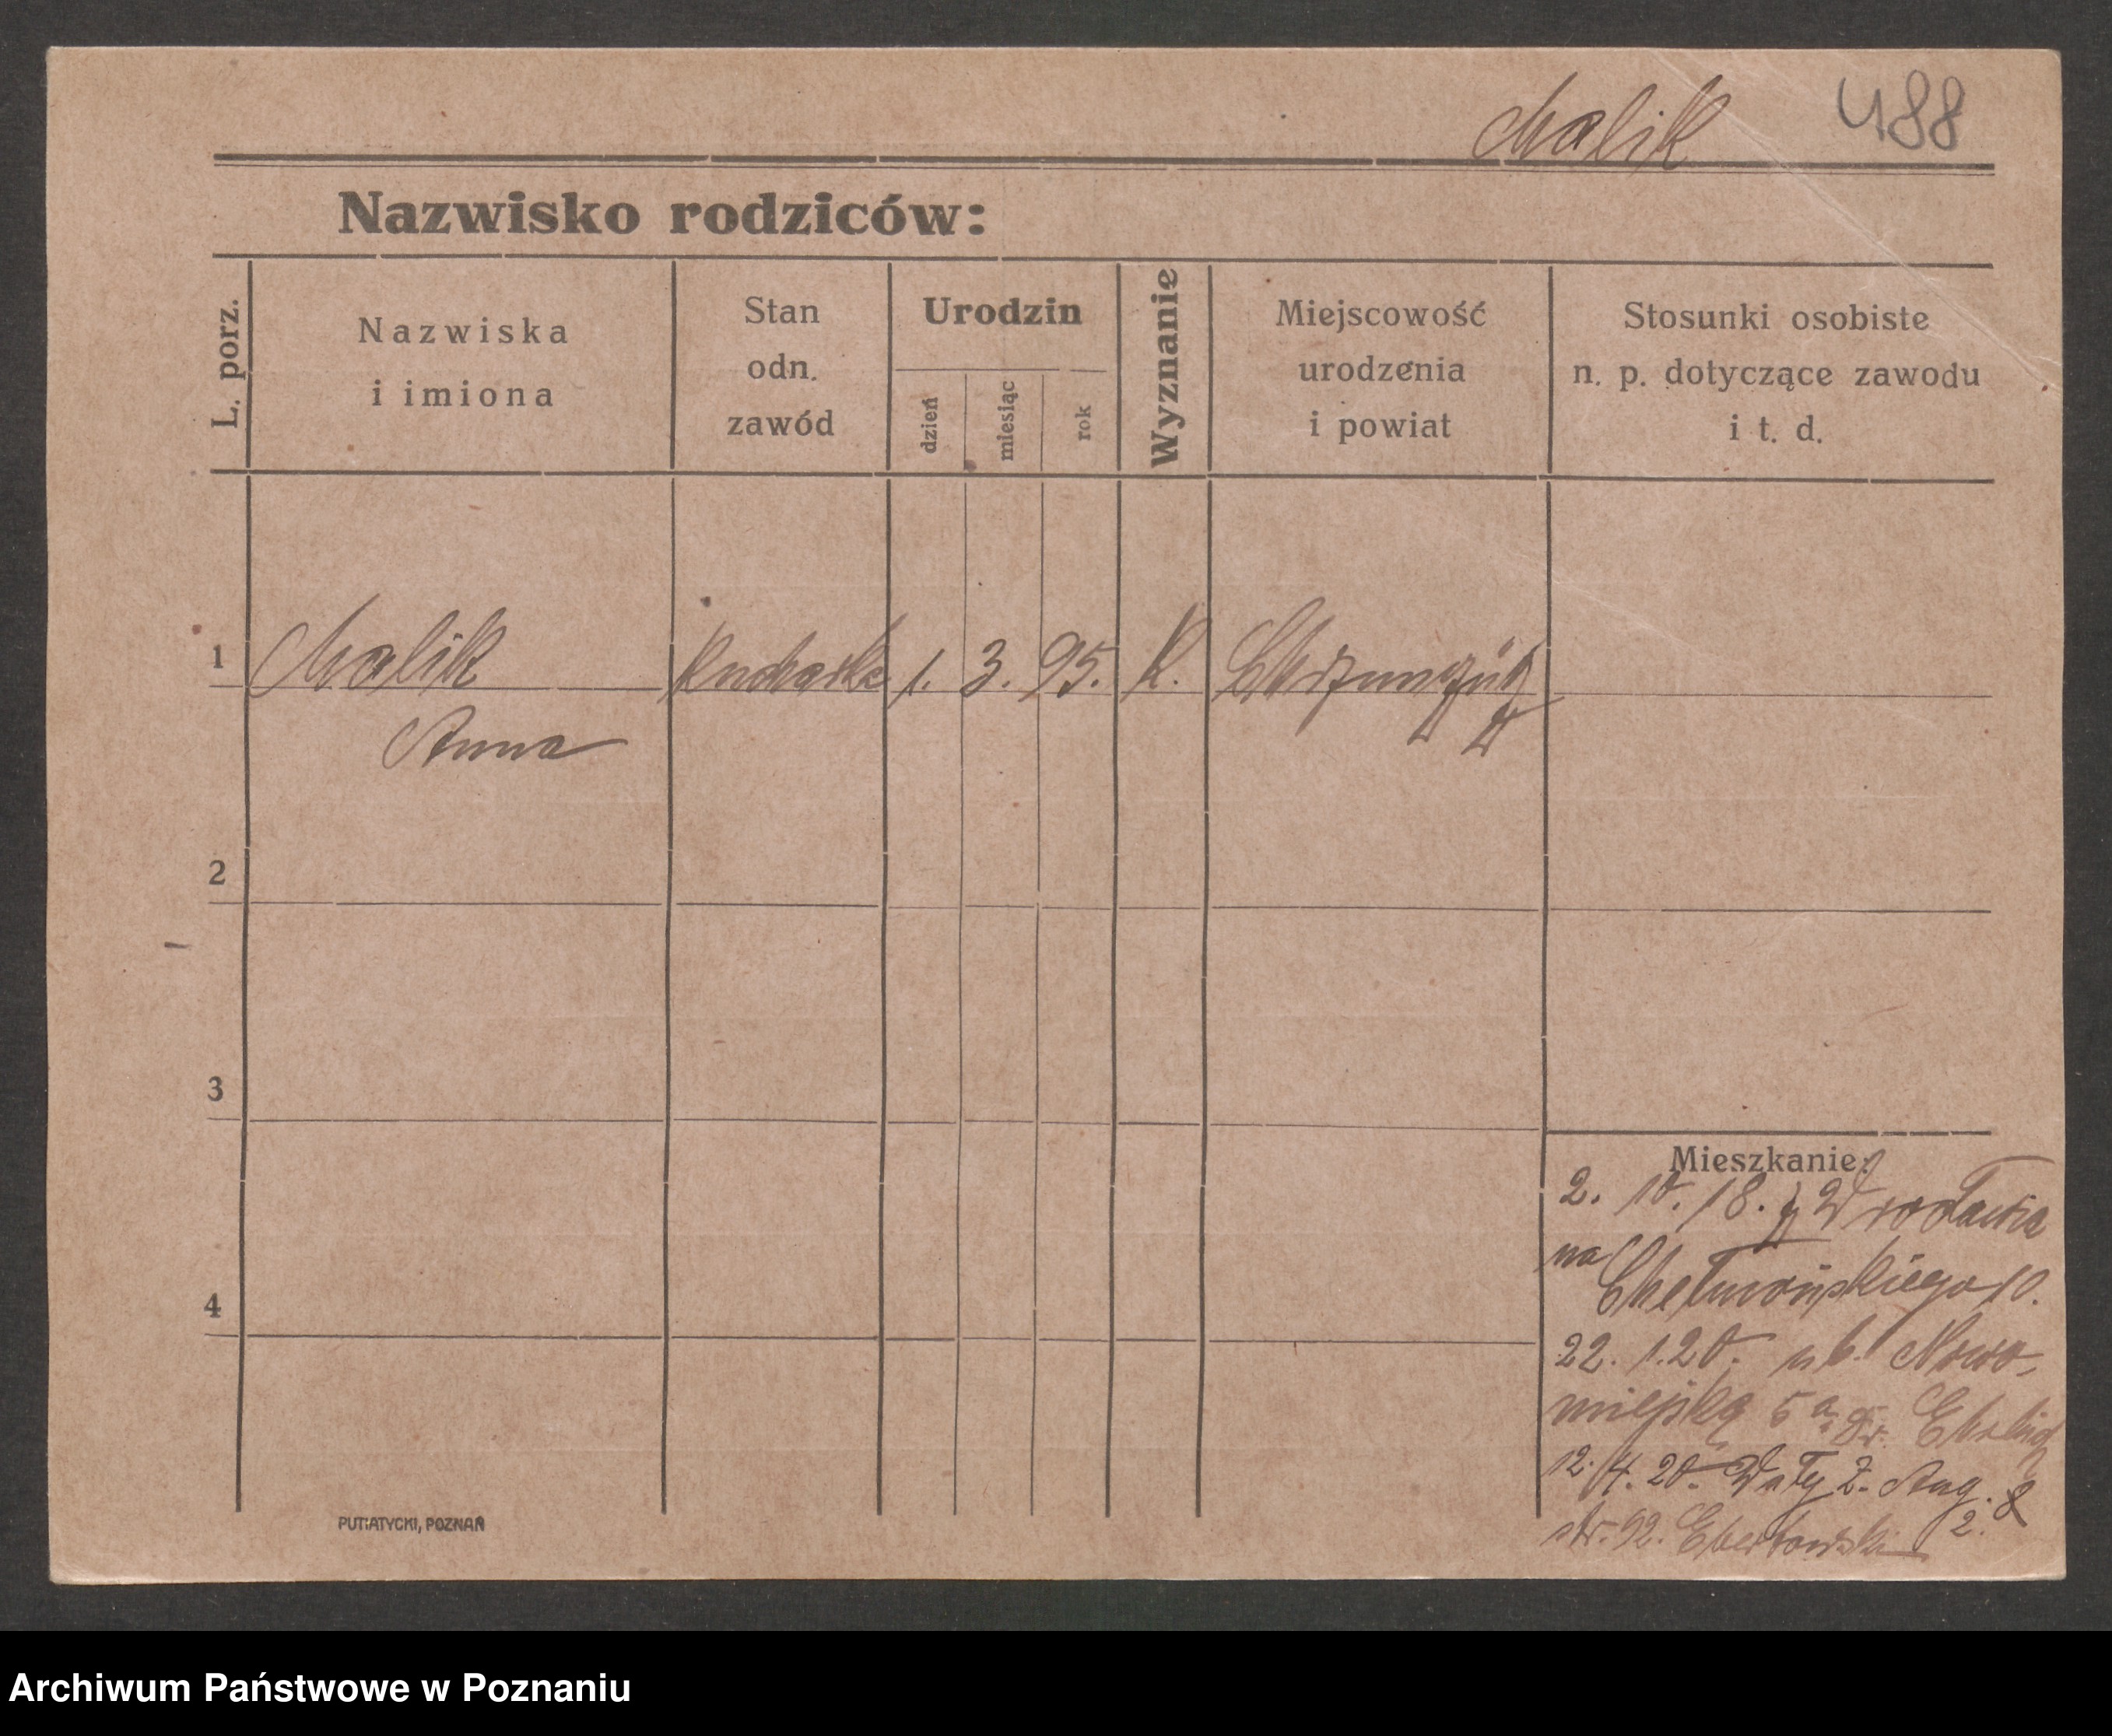 Malik 488
Nazwisko rodziców:
L. porz.
Nazwiska
i imiona
Stan
odn.
zawód
Urodzin
dzień
miesiąc
rok
Wyznanie
Miejscowość
urodzenia
i powiat
Stosunki osobiste
n. p. dotyczące zawodu
i t. d.
1 Malik Kucharka 1. 3. 95. K.
Anna
2
3
4
Mieszkanie:
2. 10. 18. z Wrocławia
na
Chełmońskiego 10.
22. 1. 20. Nowo-
miejska 5a
12. 4. 20. Wały Z. Aug. 8
PUTIATYCKI, POZNAŃ
Archiwum Państwowe w Poznaniu